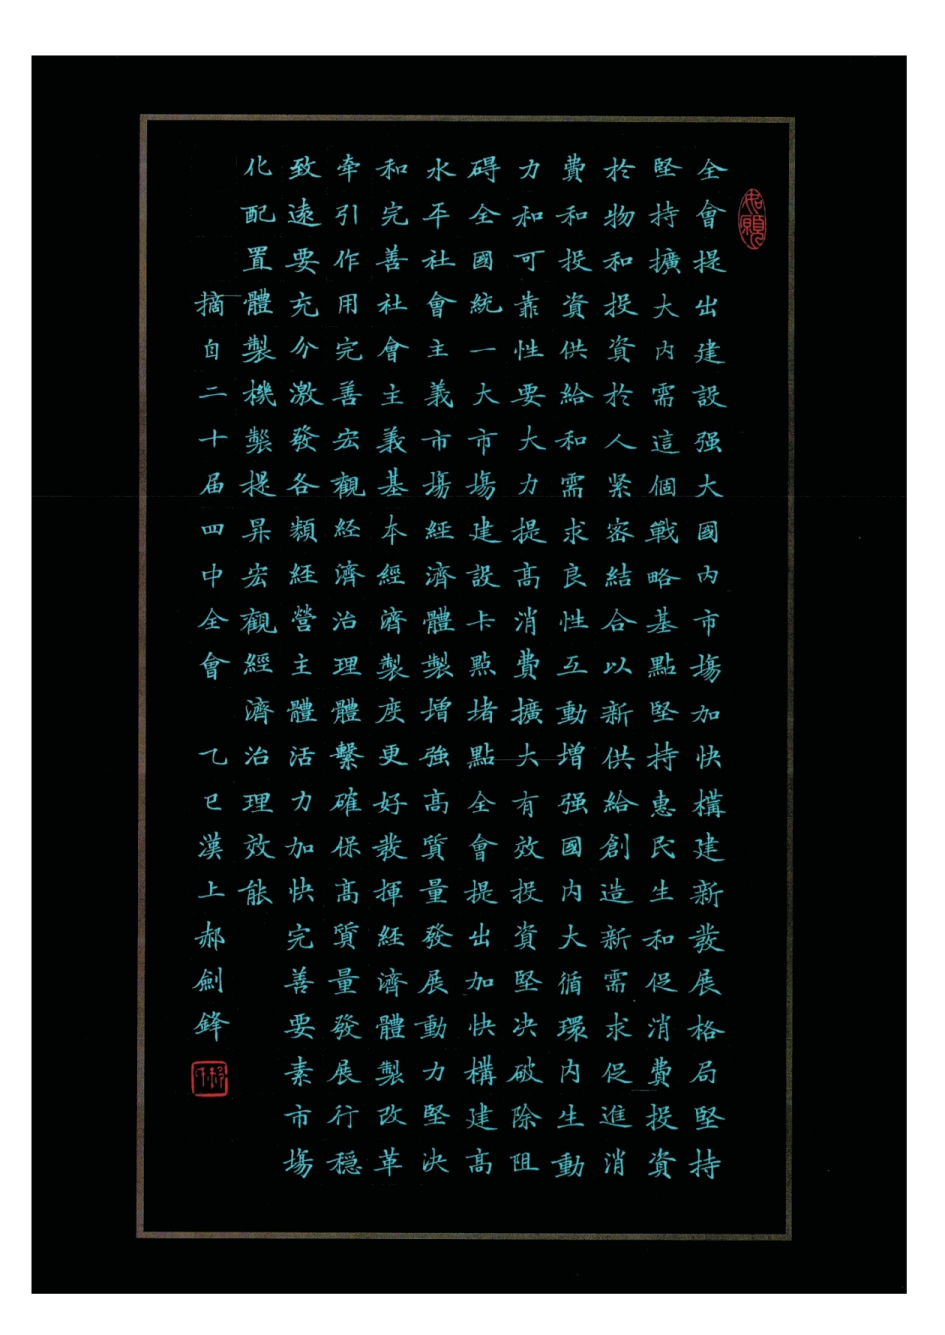 全會提出建設强大國内市場加快構建新發展格局堅持
堅持擴大内需這個戰略基點堅持惠民生和促消費投資
於物和投資於人紧密結合以新供給創造新需求促進消
費和投資供給和需求良性互動增强國内大循環内生動
力和可靠性要大力提高消費擴大有效投資堅决破除阻
碍全國統一大市場建設卡點堵點全會提出加快構建高
水平社會主義市場經濟體製增強高質量發展動力堅決
和完善社會主義基本經濟製度更好發揮經濟體製改革
牽引作用完善宏觀經濟治理體繫確保高質量發展行穩
致遠要充分激發各類經營主體活力加快完善要素市場
化配置體製機製提昇宏觀經濟治理效能
摘自二十届四中全會 乙巳漢上郝劍鋒